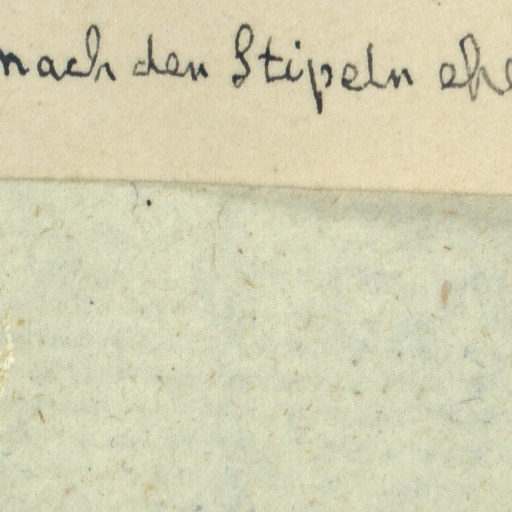 nach den Stipeln ehe